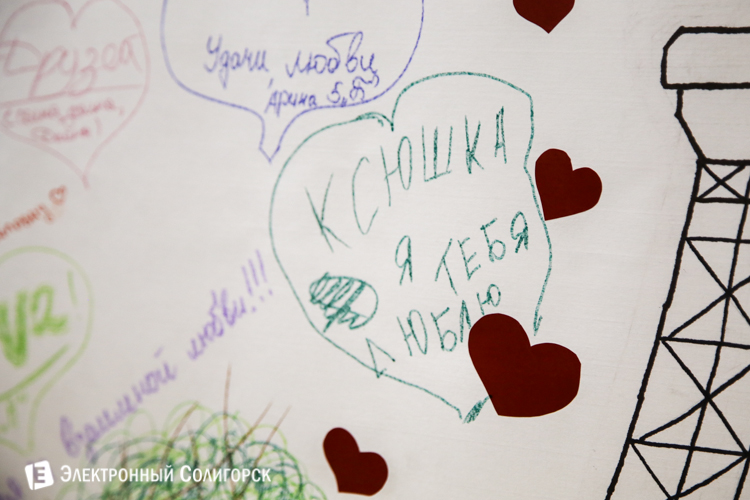 Друзей
Удачи любви
Арина 5"Б"
КСЮШКА
Я ТЕБЯ
ЛЮБЛЮ
V2
взаимной любви!!!
Электронный Солигорск